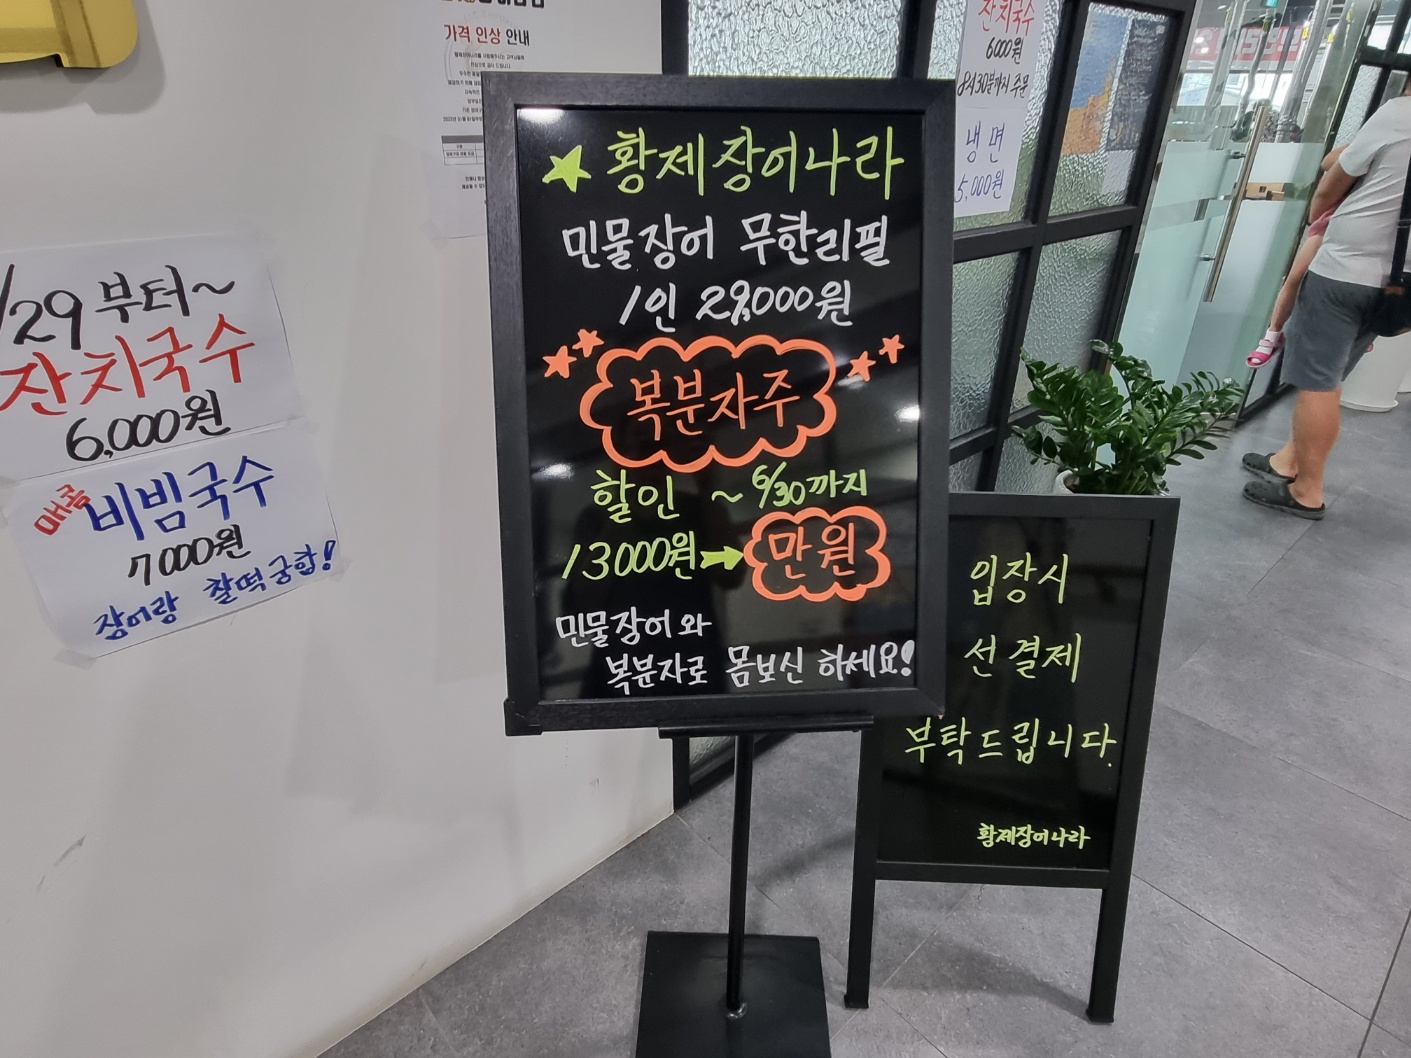 가격 인상 안내
/29 부터~
잔치국수
6,000원
매콤 비빔국수
7000원
장어랑 찰떡궁합!
황제장어나라
민물장어 무한리필
1인 29,000원
복분자주
할인 ~ 6/30까지
13000원 만원
민물장어와
복분자로 몸보신 하세요!
잔치국수
6000원
8시30분까지 주문
냉면
5,000원
입장시
선결제
부탁드립니다.
황제장어나라